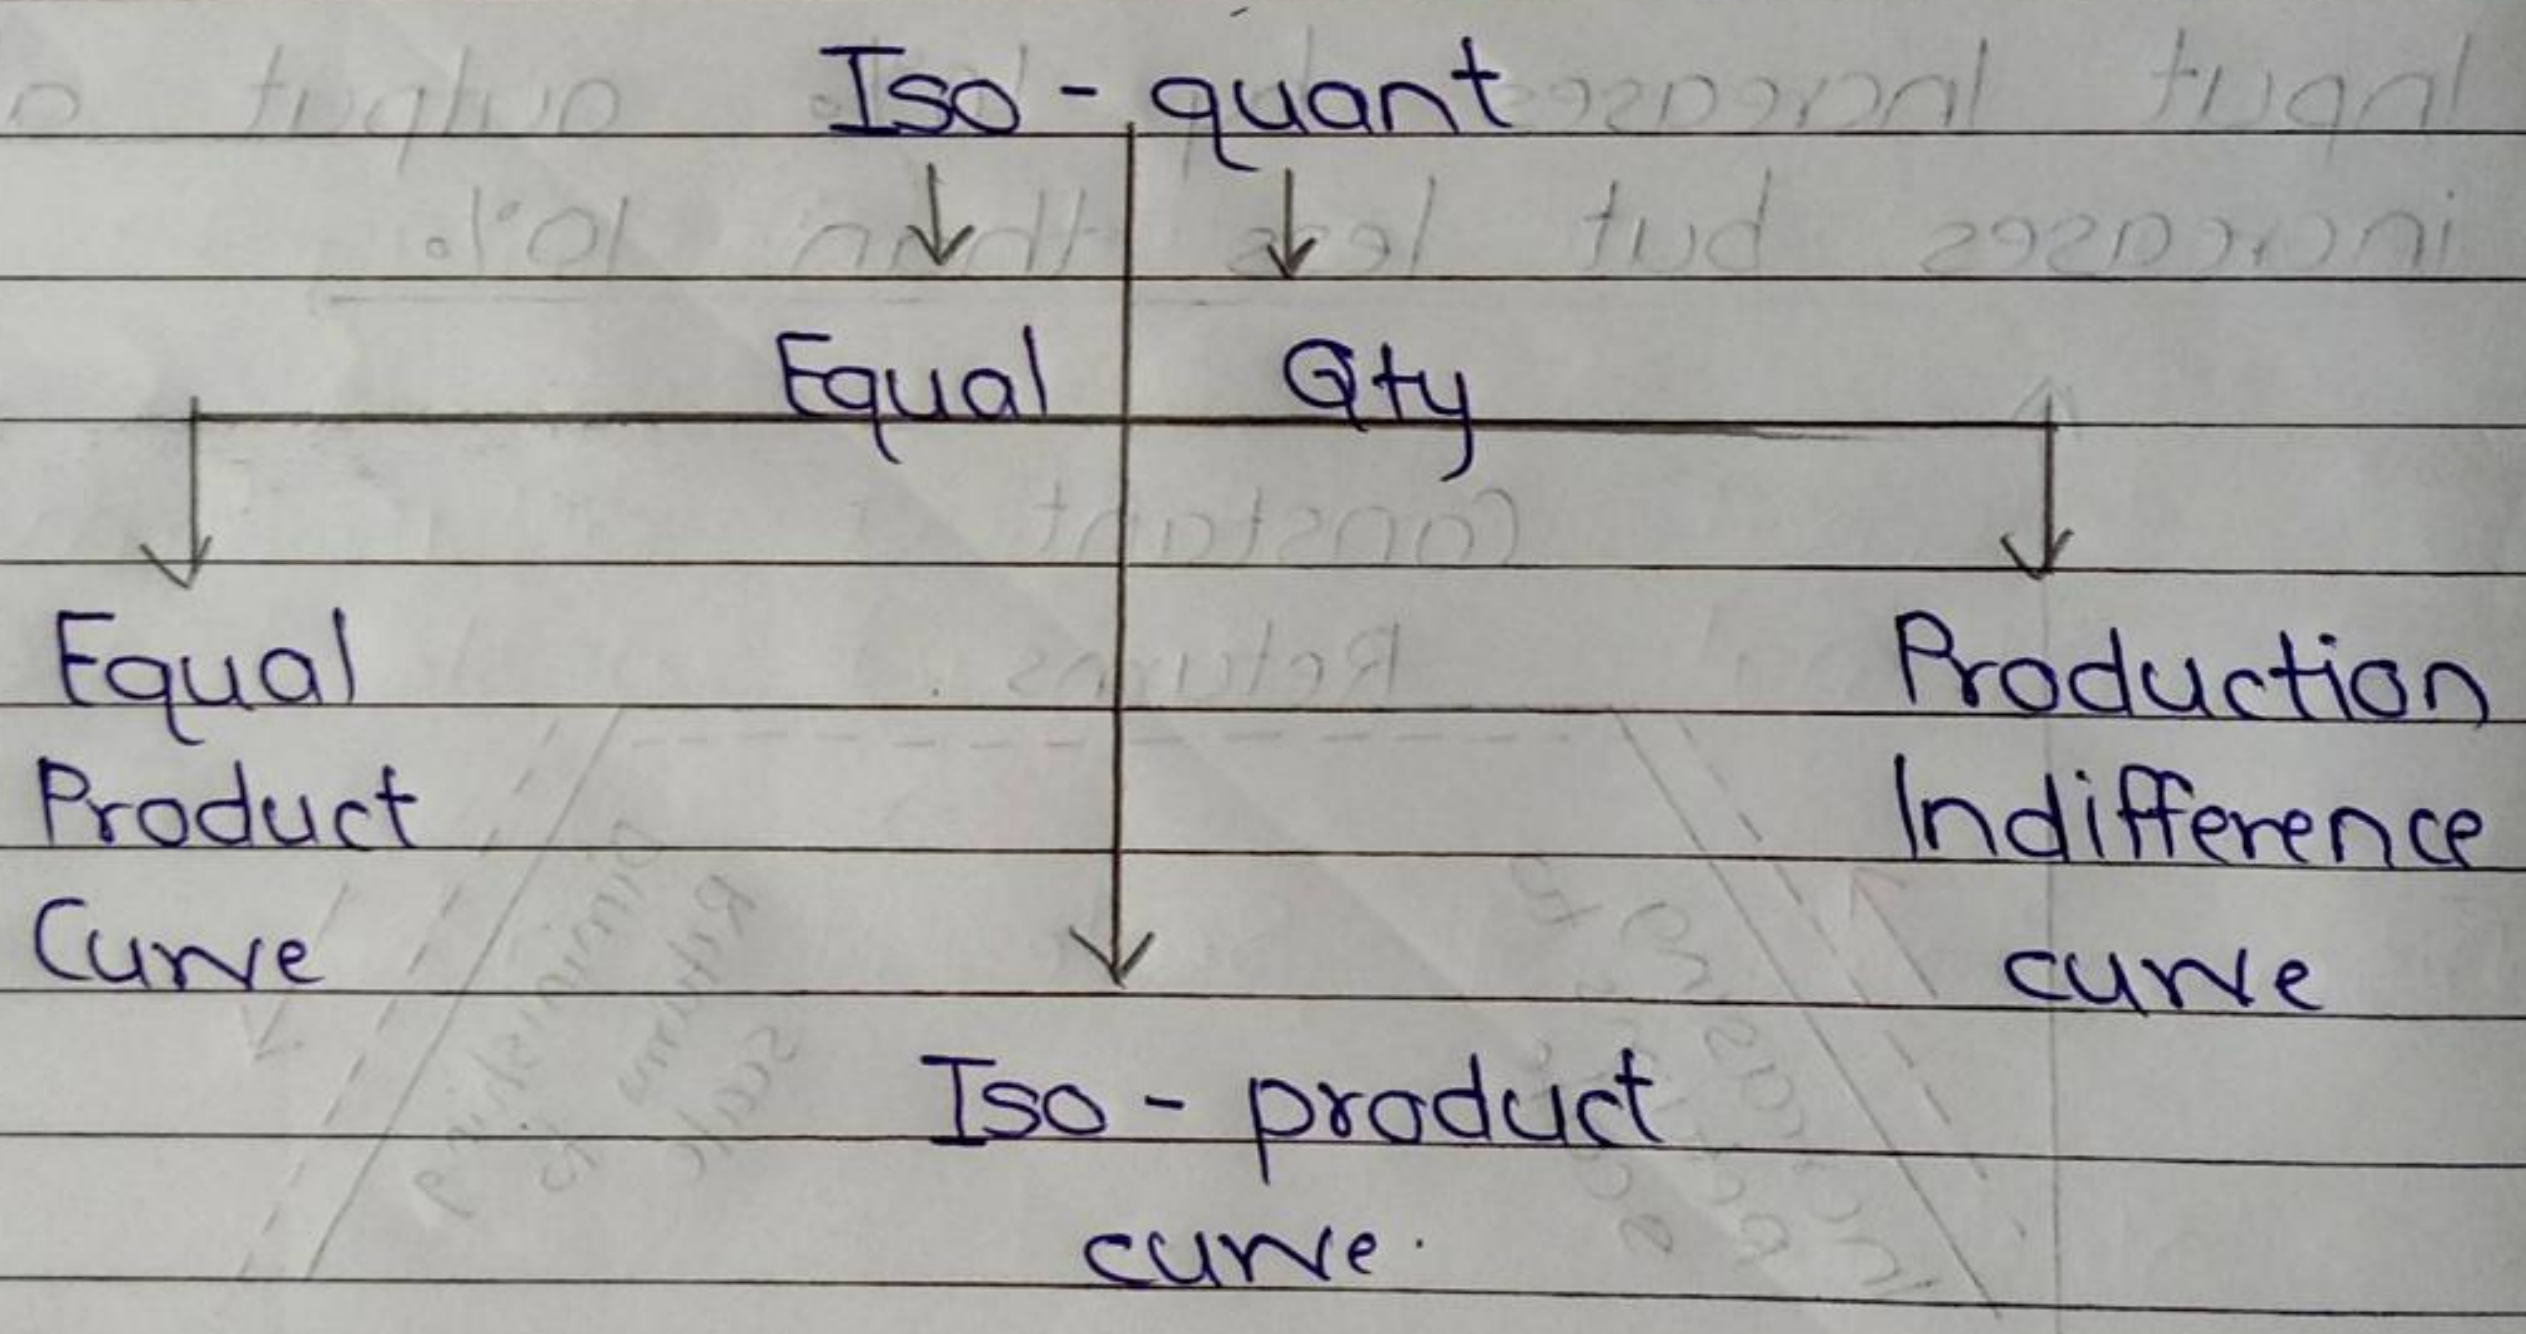 Iso - quant
Equal Qty
Equal
Product
Curve
Production
Indifference
curve
Iso - product
curve.